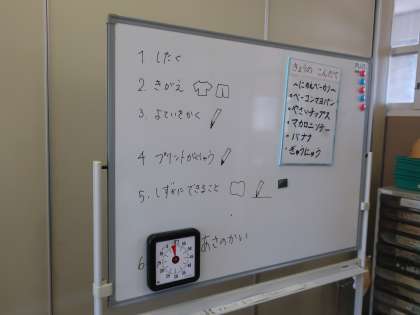 1 したく
2 きがえ
3. よていをかく
4. プリントがくしゅう
5. しずかにできること
6 あさのかい
きょうの こんだて
ベーコンマヨパン
やさいチップス
マカロニソテー
バナナ
ぎゅうにゅう